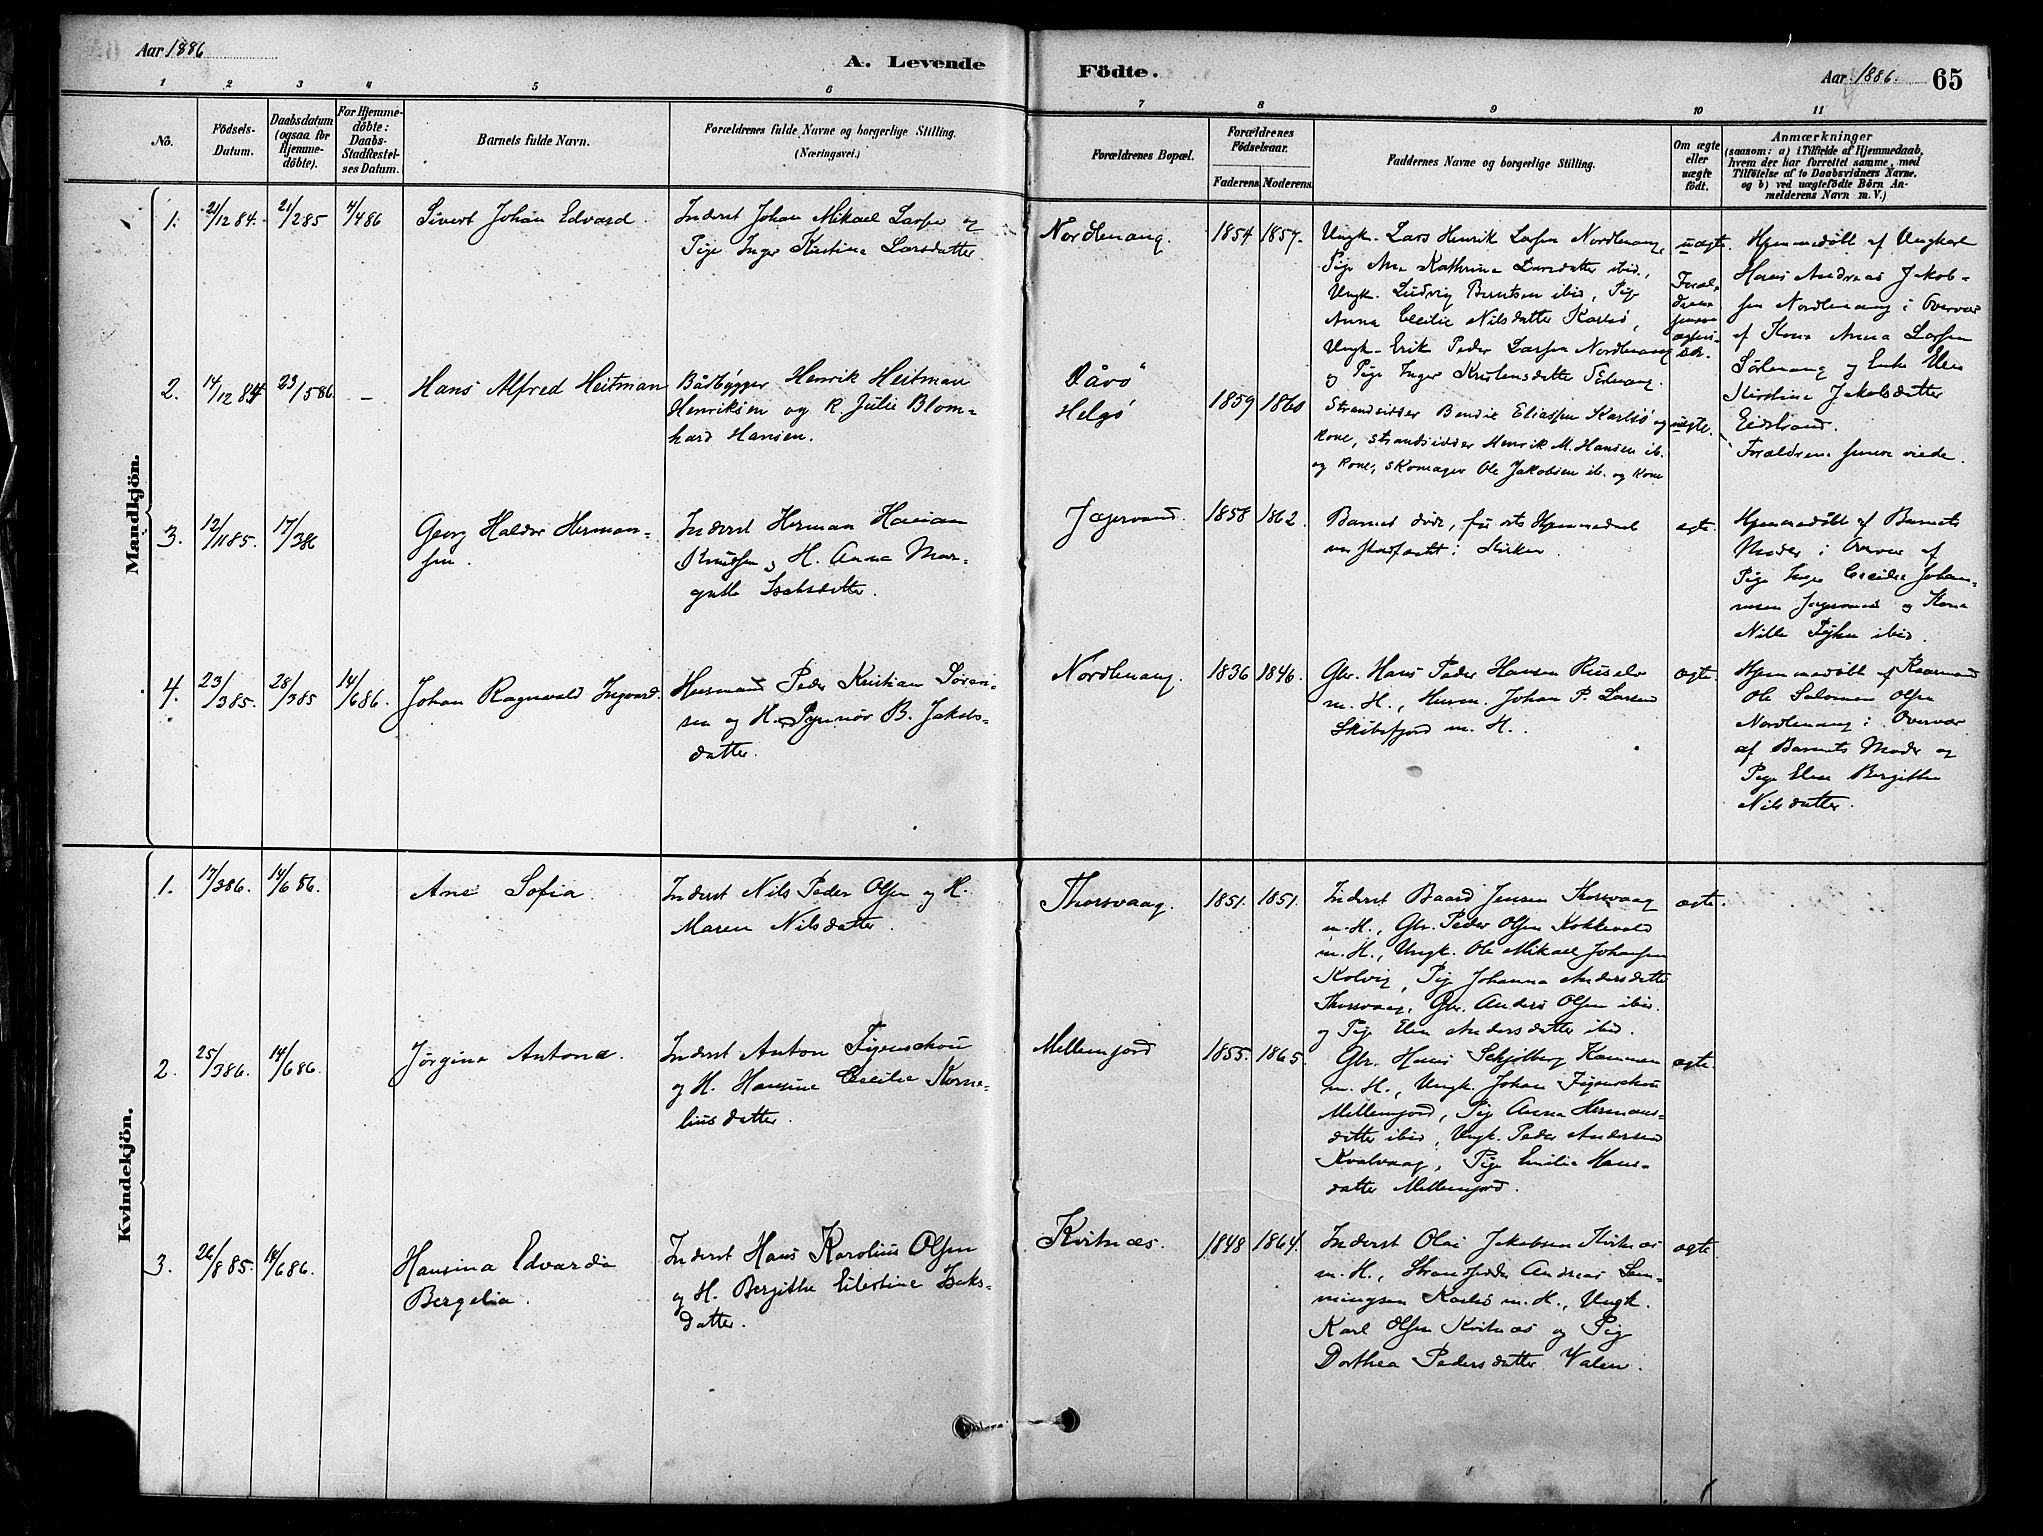 Aar 1886
A. Levende
Födte.
Aar 1886.
65
1 2 3 4 5 6 7 8 9 10 11
No.
Födsels-
Datum.
Daabsdatum
(ogsaa for
Hjemme-
döbte).
For Hjemme-
döbte:
Daabs-
Stadfæstel-
ses Datum.
Barnets fulde Navn.
Forældrenes fulde Navne og borgerlige Stilling.
(Næringsvei.)
Forældrenes Bopæl.
Forældrenes
Födselsaar.
Faderens. Moderens.
Faddernes Navne og borgerlige Stilling.
Om ægte
eller
uægte
födt.
Anmærkninger
(saasom: a) i Tilfælde af Hjemmedaab,
hvem der har forrettet samme, med
Tilföielse af to Daabsvidners Navne.
og b) ved uægtefödte Börn An-
melderens Navn m. V.)
Mandkjön.
1.
21/12 84.
21/2 85
4/4 86
Sivert Johan Edvard.
Inderst Johan Mikael Larsen og
Pige Inger Kristina Larsdatter.
Nordlenang.
1854 1857.
Ungk. Lars Henrik Larsen Nordlenang,
Pige Ane Kathrina Larsdatter ibid.,
Ungk. Ludvig Berntsen ibid, Pige
Anna Cecilie Nilsdatter Karlsö,
Ungk. Erik Peder Larsen Nordlenang
og Pige Inger Kristensdatter Sörlenang.
uægte.
Foræl-
drene
senere
Hjemmedöbt af Ungkarl
Hans Andreas Jakob-
sen Nordlenang i Overvær
af Kone Anna Larsen
Sörlenang og Enke Elen
Kirstine Jakobsdatter
Eidstrand.
Forældrene senere viede.
2.
14/12 84
23/5 86.
–
Hans Alfred Heitman
Bådbygger Henrik Heitman
Henriksen og K. Julie Blom-
hard Hansen.
Dåvö
Helgö
1859 1860
Strandsidder Bendix Eliassen Karlsö og
kone, strandsidder Henrik M. Hansen ib.
og kone, skomager Ole Jakobsen ib. og kone
uægte.
3.
12/11 85.
17/3 86
Georg Haldor Herman-
sen.
Inderst Herman Hauan
Knudsen og H. Anna Mar-
grethe Isaksdatter.
Jægervand.
1858 1862.
Barnet döde, för dets Hjemmedaab
var stadfæstet i Kirken.
ægte.
Hjemmedöbt af Barnets
Moder i Overvær af
Pige Inger Cecilie Johan-
nesen Jægervand og Kone
Nille ibid.
4.
23/3 85.
28/3 85
14/6 86.
Johan Ragnvald Ingvard.
Husmand Peder Kristian Sören-
sen og H. Synnöv B. Jakobs-
datter.
Nordlenang.
1836 1846.
Gbr. Hans Peder Hansen Russelv
m. H., Husm. Johan P. Larsen
Skibsfjord m. H.
ægte.
Hjemmedöbt af Kaarmand
Ole Salomon Olsen
Nordlenang i Overvær
af Barnets Moder og
Pige Elen Bergitte
Nilsdatter.
Kvindekjön.
1.
17/3 86.
14/6 86.
Ane Sofia
Inderst Nils Peder Olsen og H.
Maren Nilsdatter.
Thorsvaag.
1851. 1851.
Inderst Baard Jensen Thorsvaag
m. H., Gbr. Peder Olsen Kokkevold
m. H., Ungk. Ole Mikael Johansen
Kolvig, Pige Johanna Andersdatter
Thorsvaag, Gbr. Anders Olsen ibid.
og Pige Elen Andersdatter ibid.
ægte.
2.
25/3 86.
14/6 86.
Jörgine Antona.
Inderst Anton Figenschou
og H. Hansine Cecilie Korne-
liusdatter.
Mellemfjord
1855. 1865.
Gbr. Hans Schjölberg Kammen
m. H., Ungk. Johan Figenschou
Mellemfjord, Pige Anna Hermans-
datter ibid, Ungk. Peder Andersen
Kvalvaag, Pige Emilie Hans-
datter Mellemfjord.
ægte.
3.
26/8 85.
14/6 86.
Hansina Edvarda
Bergelia.
Inderst Hans Karolius Olsen
og H. Bergithe Elestine Isaks-
datter.
Kvitnæs.
1848 1864.
Inderst Olai Jakobsen Kvitnæs
m. H., Strandsidder Andreas Lem-
mingsen Karlsö m. H., Ungk.
Karl Olsen Kvitnæs og Pige
Dorthea Pedersdatter Valen.
ægte.